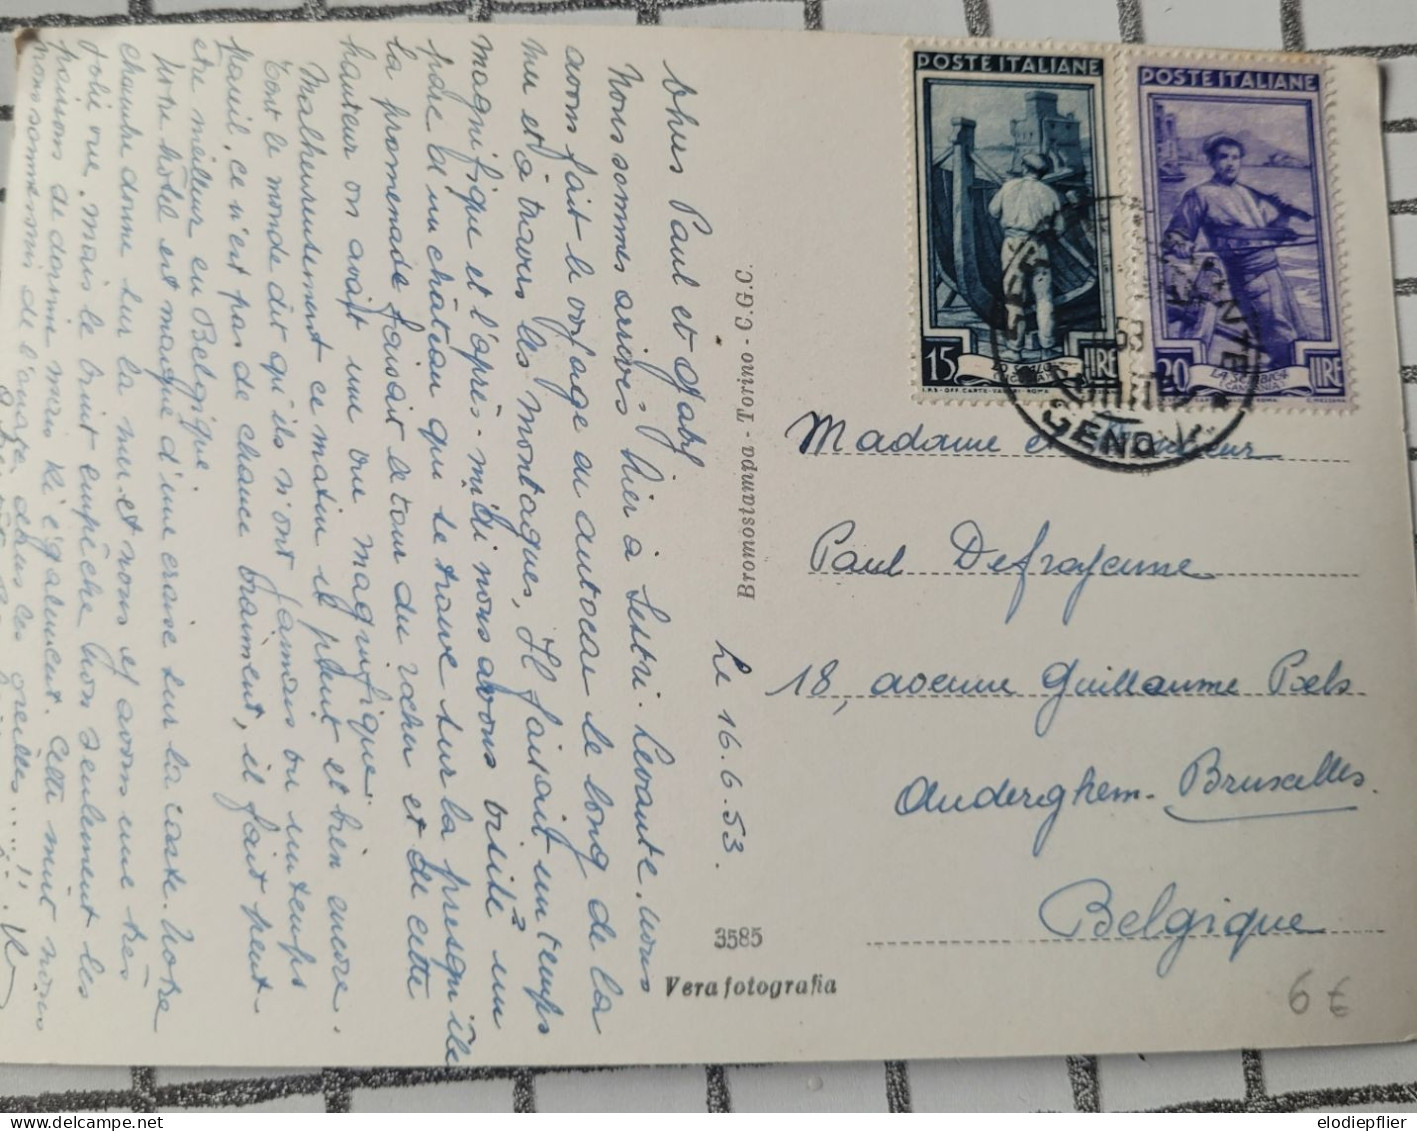 Le 16.6.53.
Chers Paul et Gaby
Nous sommes arrivés hier à Sestri-Levante. nous
avons fait le voyage en autocar le long de la
mer et à travers les montagnes, Il faisait un temps
magnifique et l'après-midi nous avons visité un
parc de un château qui se trouve sur la presqu'île
la promenade faisait le tour du rocher et de cette
hauteur on avait une vue magnifique.
Malheureusement ce matin il pleut et bien encore.
Tout le monde dit qu'ils n'ont jamais vu un temps
pareil, ce n'est pas de chance vraiment, il fait peut
etre meilleur en Belgique.
Notre hôtel est marqué d'une croix sur la carte. Notre
chambre donne sur la mer et nous y avons une très
jolie vue, mais le bruit empêche non seulement les
poissons de dormir mais également. Cette nuit nous
nous sommes mis de l'ouate dans les oreilles....!!
Bromostampa - Torino - C.G.C.
3585
Vera fotografia
POSTE ITALIANE
15 LIRE
POSTE ITALIANE
20 LIRE
GENO
Madame et Monsieur
Paul Defrajenne
18, avenue Guillaume Poels
Auderghem - Bruxelles.
Belgique
6 €
elodiepflier